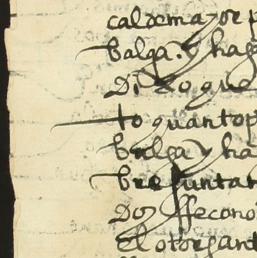 calde mayor p
balga y hag
Di zo que
to quanto p
balga y ha
bre juntar
Dor ffecono
El otorgant